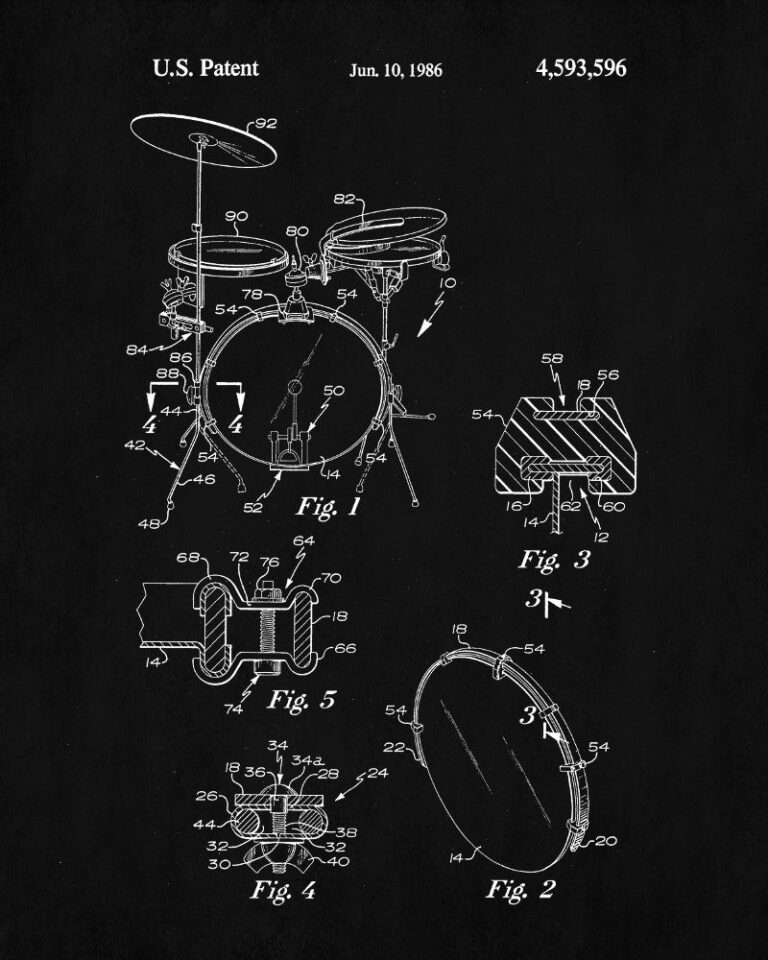 U.S. Patent Jun. 10, 1986 4,593,596
92
82
90
80
10
78
54 54
84
86
88
44
4 4
50
42
54
46
14 54
52
48
Fig. 1
58 18 56
54
16 14 62 60
12
Fig. 3
64
68 72 76 70
18
14 66
74
Fig. 5
3
18 54
54
3
22 54
20
14
Fig. 2
34
36 34a
18 28 24
26
44 38
32 32
30 40
Fig. 4